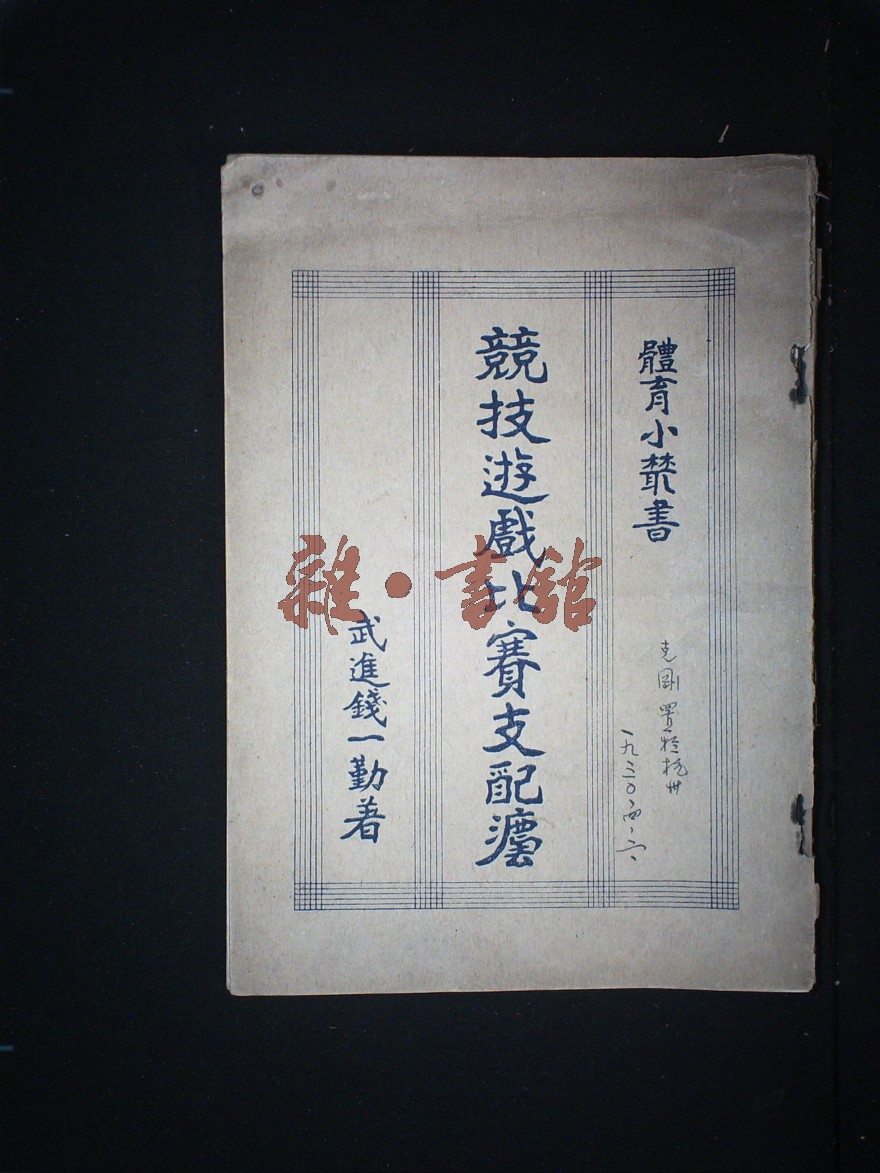 體育小叢書
克剛置於杭州
一九三〇、四、六、
競技遊戲比賽支配灋
武進錢一勤著
雜·書館